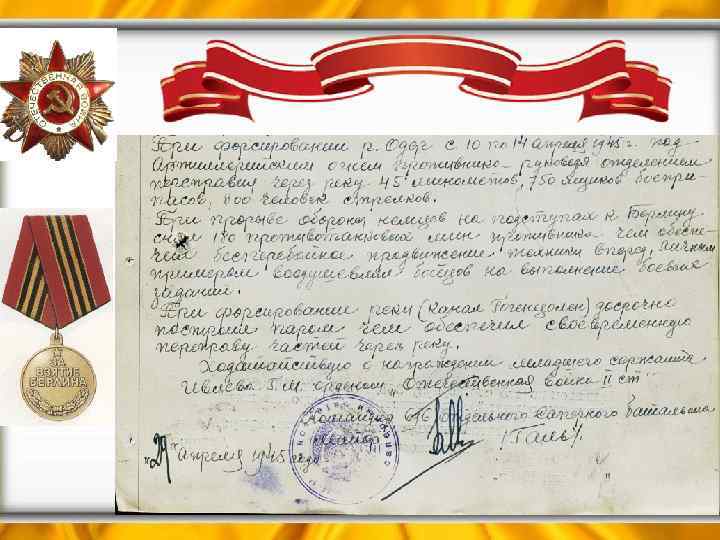 ОТЕЧЕСТВЕННАЯ ВОЙНА
При форсировании р. Одер с 10 по 14 апреля 1945 г. под
Артиллерийским огнем противника руководя отделением
переправил через реку 45 минометов, 750 ящиков боепри-
пасов, 800 человек стрелков.
При прорыве обороны немцев на подступах к Берлину
снял 180 противотанковых мин противника чем обеспе-
чил бесперебойное продвижение техники вперед. Личным
примером воодушевлял бойцов на выполнение боевых
заданий.
При форсировании реки (канал Гогенцолен) досрочно
построил паром чем обеспечил своевременную
переправу частей через реку.
Ходатайствую о награждении младшего сержанта
Г.М. орденом „Отечественная война II ст"
Командир отдельного саперного батальона
майор
"29" апреля 1945 года
ЗА
ВЗЯТИЕ
БЕРЛИНА